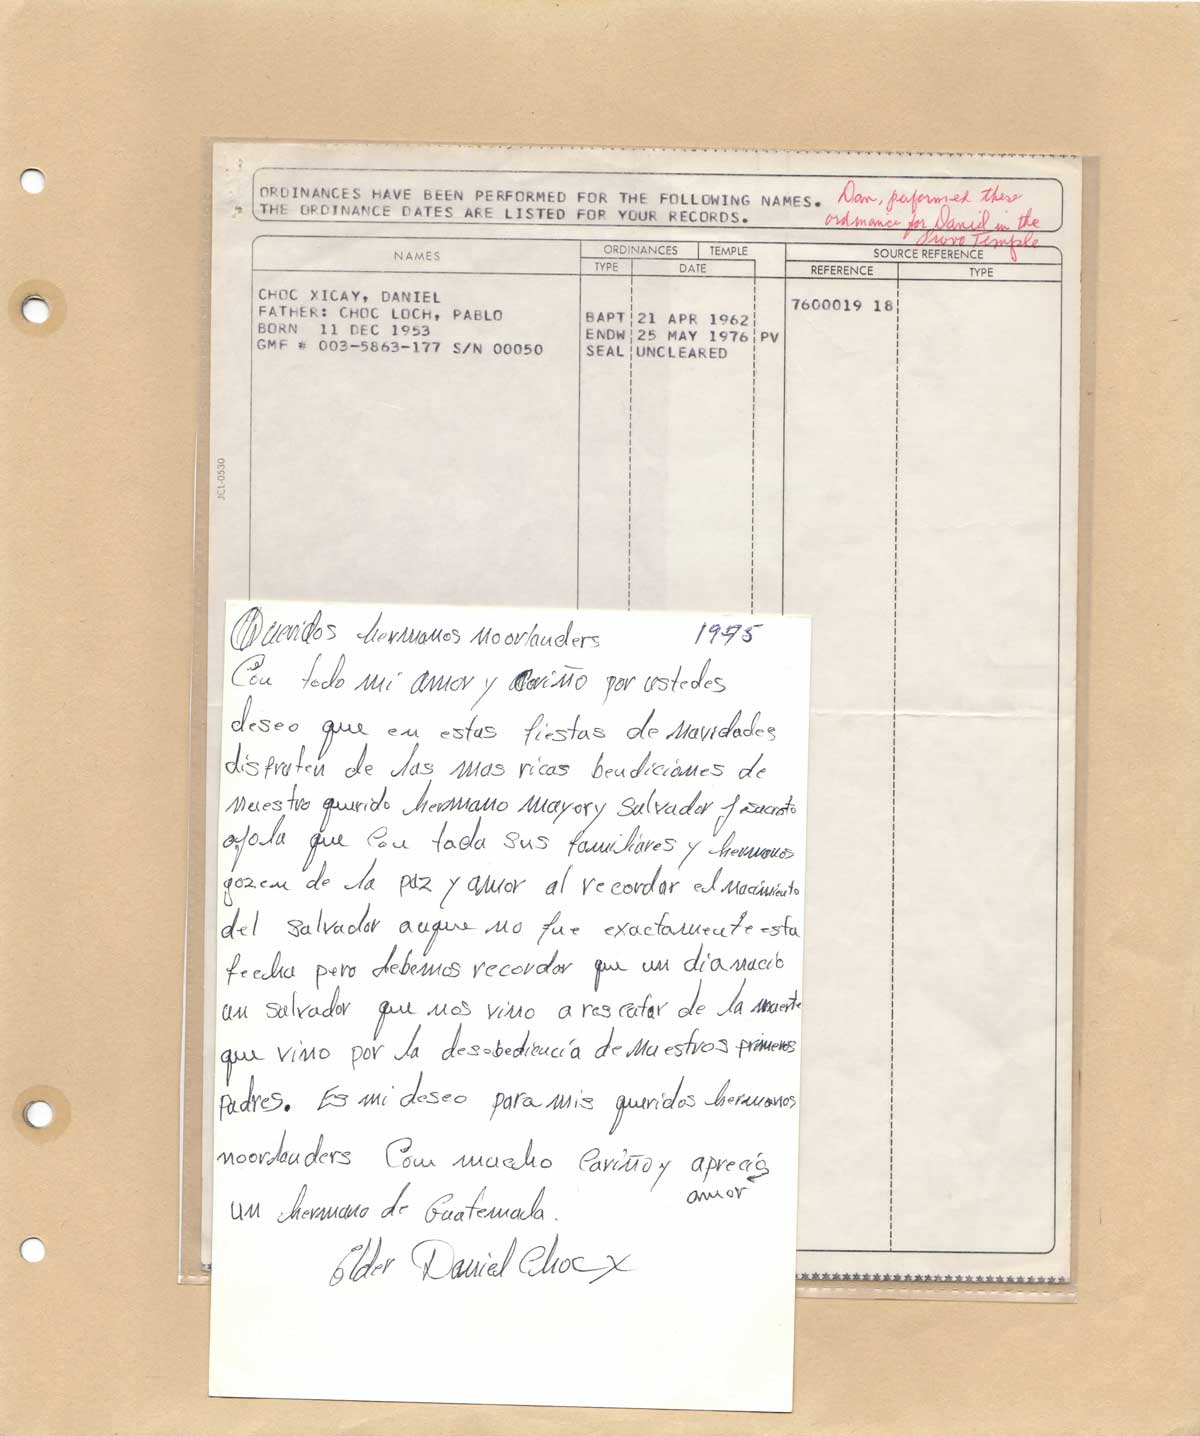 ORDINANCES HAVE BEEN PERFORMED FOR THE FOLLOWING NAMES.
THE ORDINANCE DATES ARE LISTED FOR YOUR RECORDS.
Dan, performed these
ordinance for Daniel in the
Provo Temple
NAMES
ORDINANCES TEMPLE
TYPE DATE
SOURCE REFERENCE
REFERENCE TYPE
CHOC XICAY, DANIEL
FATHER: CHOC LOCH, PABLO
BORN 11 DEC 1953
GMF # 003-5863-177 S/N 00050
BAPT 21 APR 1962
ENDW 25 MAY 1976 PV
SEAL UNCLEARED
7600019 18
JCL-0530
Queridos hermanos Noorlanders 1975
Con todo mi amor y cariño por ustedes
deseo que en estas fiestas de Navidades
disfruten de las mas ricas bendiciones de
Nuestro querido hermano mayor y Salvador Jesucristo
ojola que con toda sus familiares y hermanos
gozen de la paz y amor al recordar el Nacimiento
del Salvador auque no fue exactamente esta
fecha pero debemos recordar que un dia nacio
un Salvador que nos vino a rescatar de la muerte
que vino por la desobediencia de Nuestros primeros
padres. Es mi deseo para mis queridos hermanos
Noorlanders Con mucho Cariño y aprecio
amor
un hermano de Guatemala.
Elder Daniel Choc X